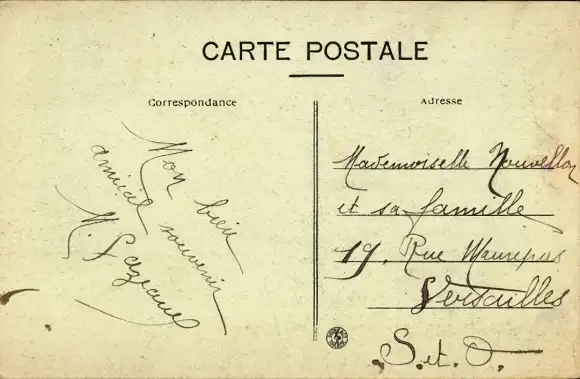 CARTE POSTALE
Correspondance
Mon bien
amical souvenir
Adresse
Mademoiselle
et sa famille
19, Rue Maurepas
Versailles
S. et. O.